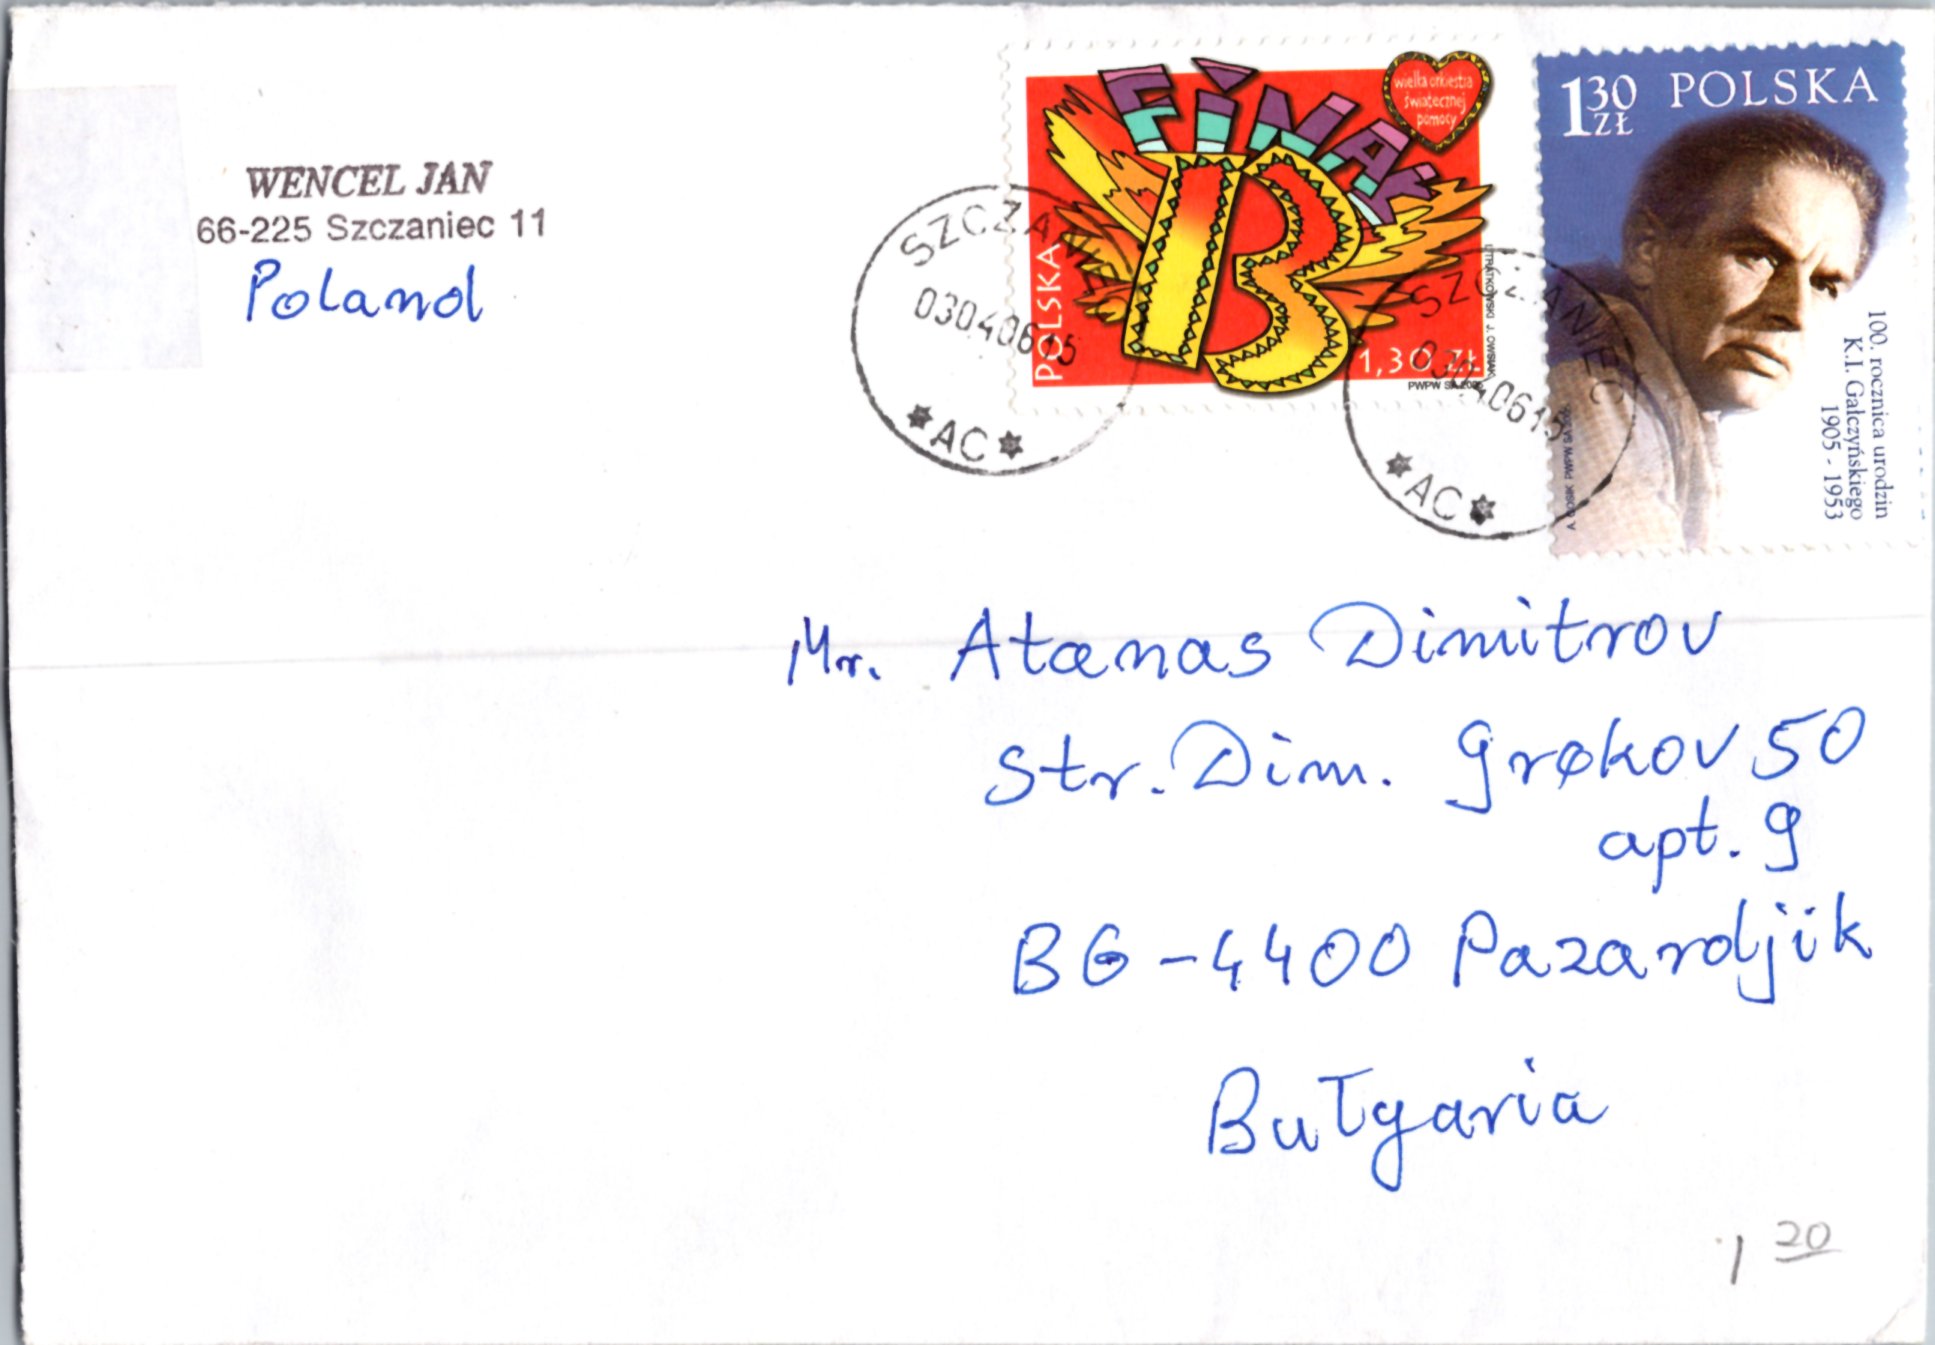 WENCEL JAN
66-225 Szczaniec 11
Poland
FINAŁ
13
wielka orkiestra
świątecznej
pomocy
POLSKA
1,30 ZŁ
PWPW SA 2005
J. OWSIAK
1 30 ZŁ
POLSKA
100. rocznica urodzin
K.I. Gałczyńskiego
1905 - 1953
PWPW SA
SZCZANIEC
03040615
*AC*
SZCZANIEC
03040615
*AC*
Mr. Atanas Dimitrov
Str. Dim. Grekov 50
apt. 9
BG-4400 Pazardjik
Bułgaria
1 20